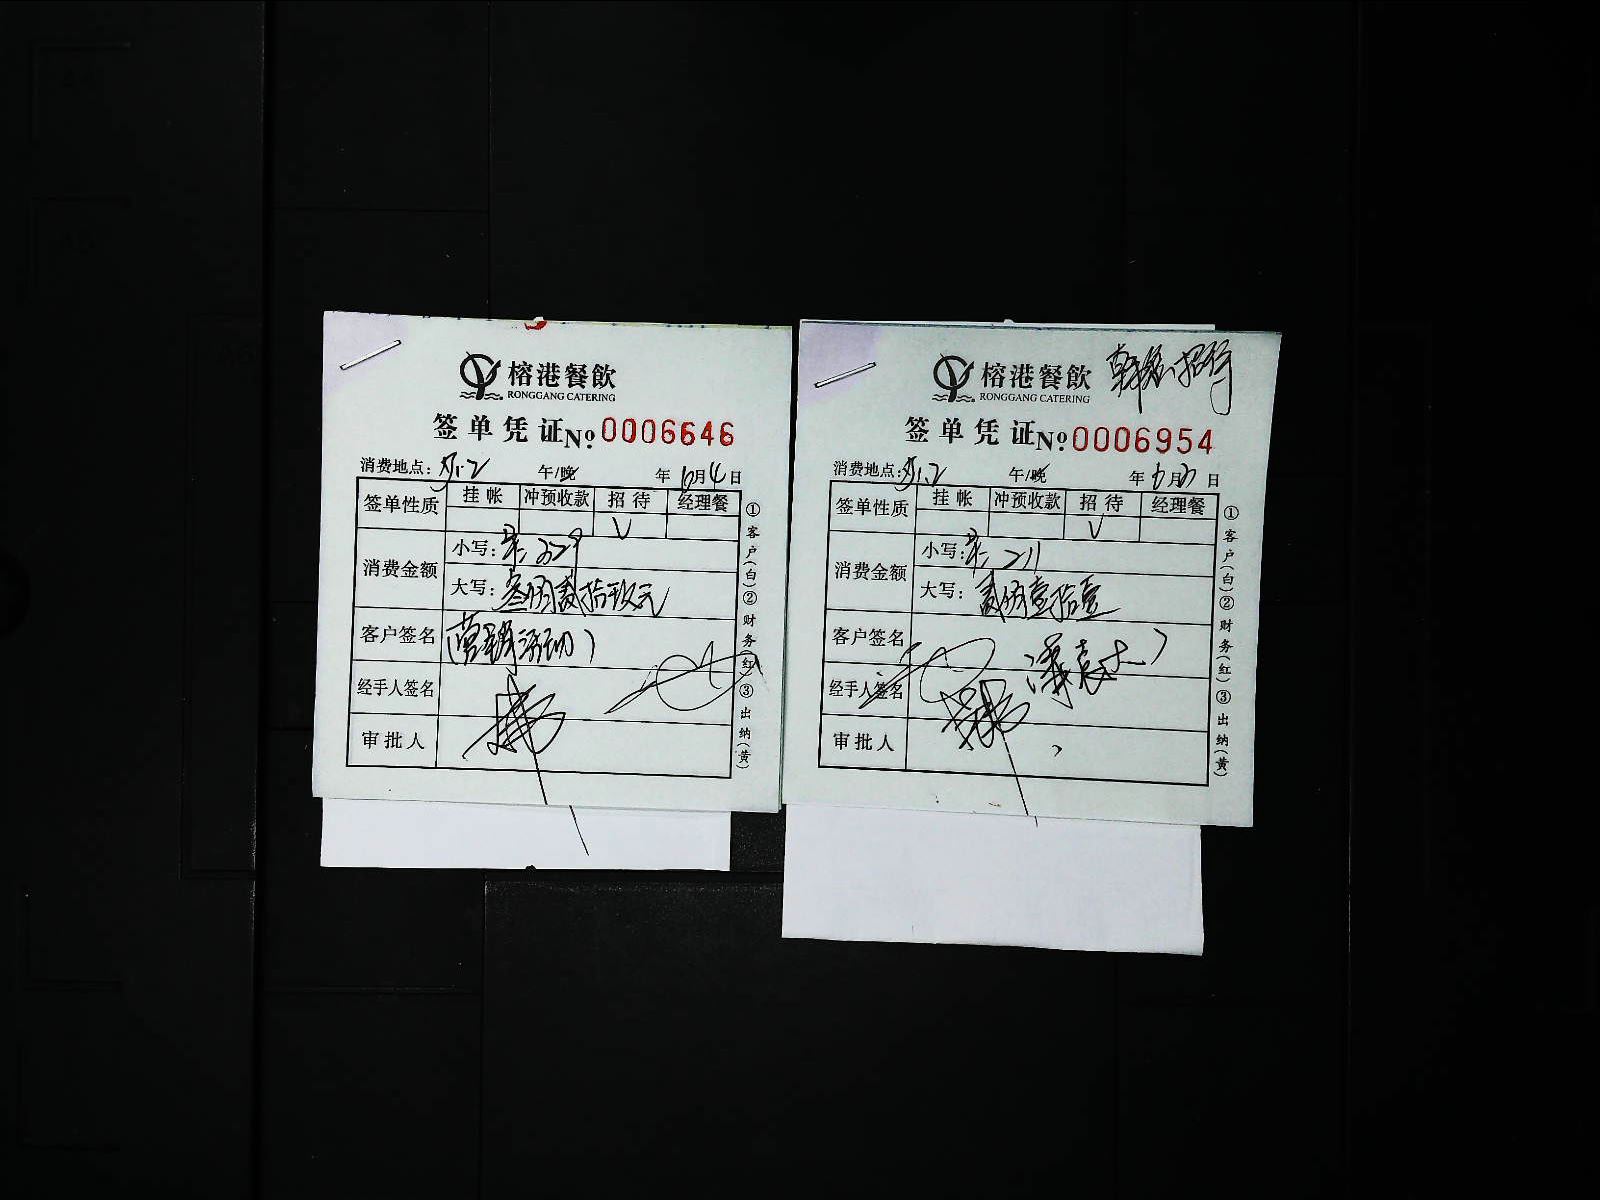 榕港餐飲
RONGGANG CATERING
签单凭证 №0006646
消费地点: 午/晚 年 6月4日
签单性质 挂帐 冲预收款 招待 经理餐
√
消费金额
小写: 329
大写: 叁佰贰拾玖元
客户签名 (营销活动)
经手人签名
审批人
①客户(白)②财务(红)③出纳(黄)
榕港餐飲
RONGGANG CATERING
招行
签单凭证 №0006954
消费地点: 午/晚 年 6月 日
签单性质 挂帐 冲预收款 招待 经理餐
√
消费金额
小写: 211
大写: 贰佰壹拾壹
客户签名
经手人签名
审批人
①客户(白)②财务(红)③出纳(黄)